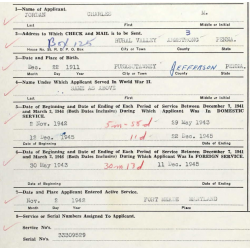 1—Name of Applicant.
JORDAN CHARLES
Last First Middle or Initial
2—Address to which CHECK and MAIL is to be Sent. 3
Box 125 RURAL VALLEY ARMSTRONG PENNA.
House No. St. R. D. P. O. Box City or Town County State
3—Date and Place of Birth.
Dec. 1911 PUNXSUTAWNEY Jefferson PENNA.
Month Day Year City or Town County State
4—Name Under Which Applicant Served In World War II.
SAME AS ABOVE
Last First Middle or Initial
5—Date of Beginning and Date of Ending of Each Period of Service Between December 7, 1941
and March 2, 1946 (Both Dates Inclusive) During Which Applicant Was in DOMESTIC
SERVICE.
5 Nov. 1942 29 May 1943
12 Dec. 1945 11 d. 22 Dec. 1945
6—Date of Beginning and Date of Ending of Each Period of Service Between December 7, 1941
and March 2, 1946 (Both Dates Inclusive) During Which Applicant Was in FOREIGN SERVICE.
30 May 1943 11 Dec. 1945
7—Date and Place Applicant Entered Active Service.
Nov. 5 1942 FORT MEADE MARYLAND
Month Day Year City or Town State
8—Service or Serials Numbers Assigned To Applicant.
Service No.
Serial No.